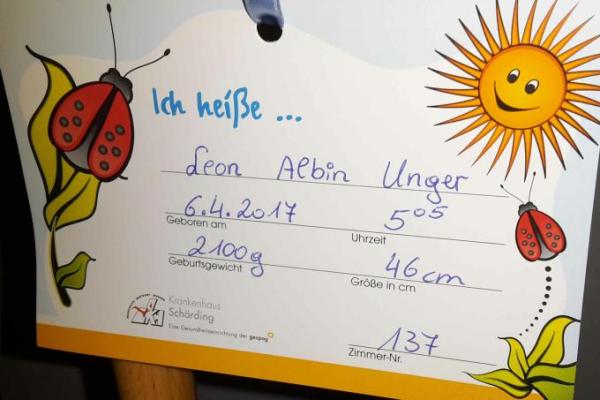 Ich heiße ...
Leon Albin Unger
6.4.2017 5⁰⁵
Geboren am Uhrzeit
2100g 46cm
Geburtsgewicht Größe in cm
Krankenhaus
Schärding
Eine Gesundheitseinrichtung der gespag
137
Zimmer-Nr.